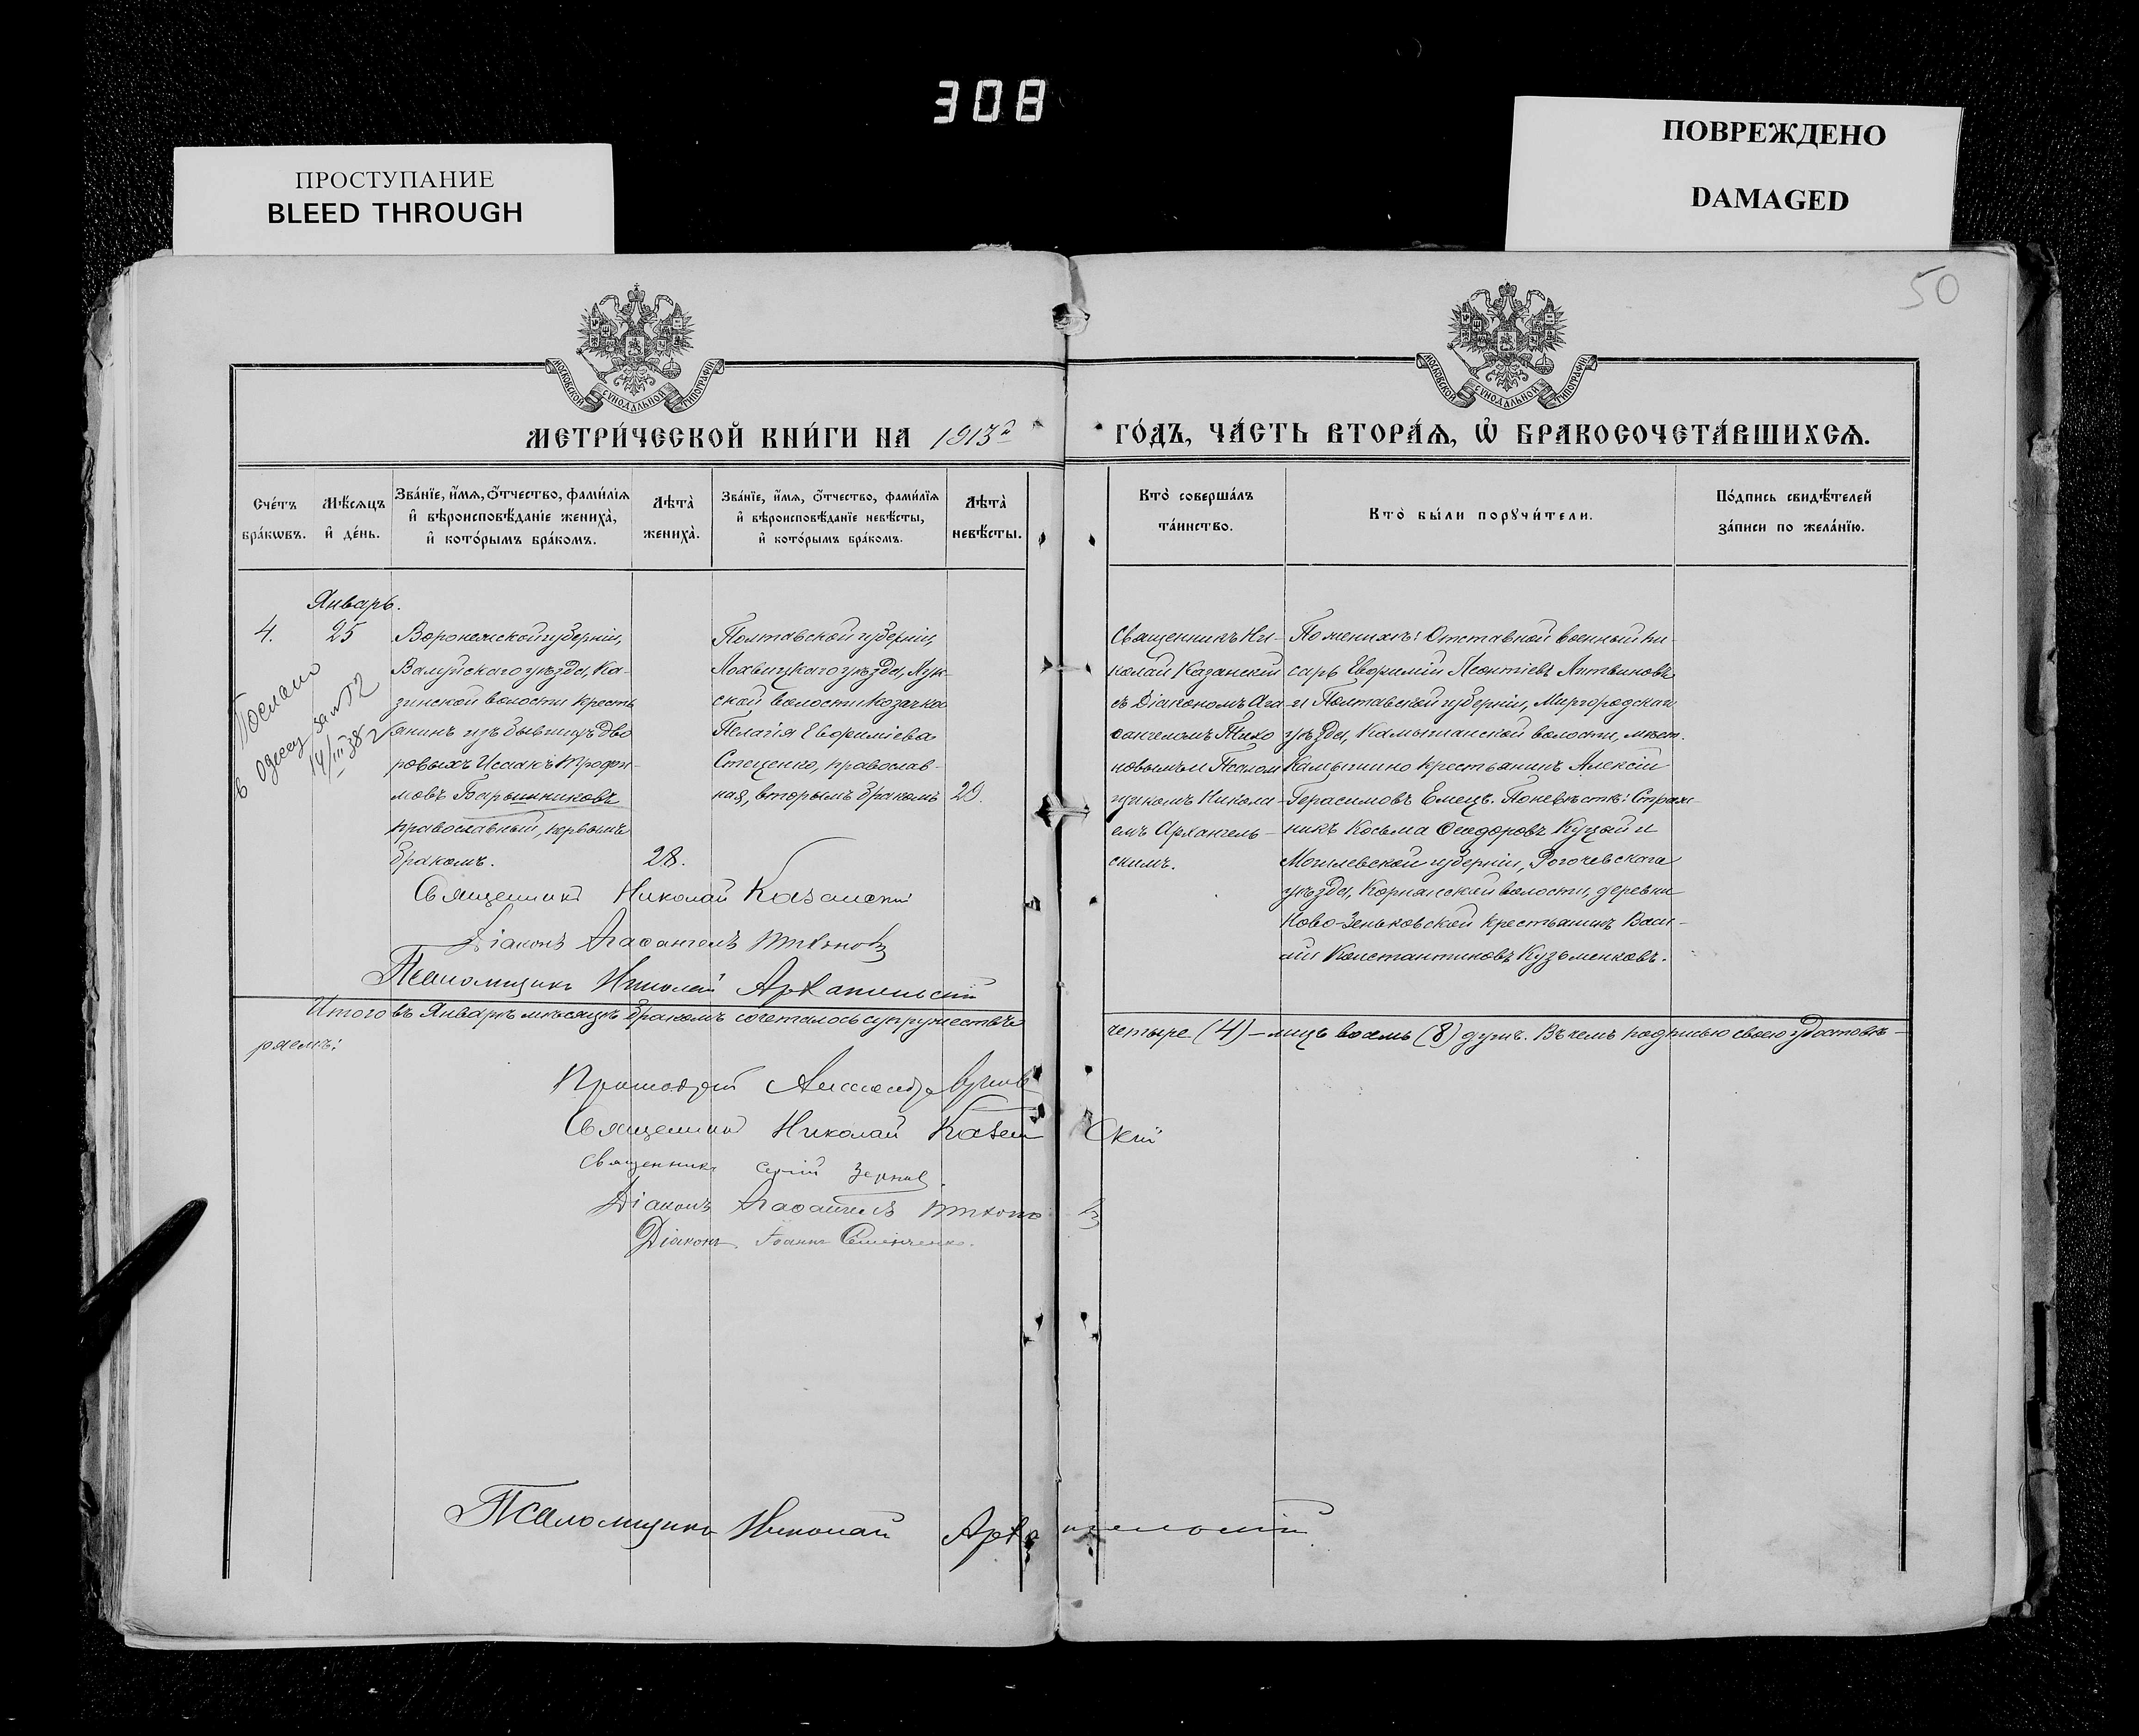 308
ПРОСТУПАНИЕ
BLEED THROUGH
ПОВРЕЖДЕНО
DAMAGED
50
МОСКОВСКОЙ СѴНОДАЛЬНОЙ ТИПОГРАФІИ
МОСКОВСКОЙ СѴНОДАЛЬНОЙ ТИПОГРАФІИ
МЕТРИ́ЧЕСКОЙ КНИ́ГИ НА 1913й
ГО́ДЪ, ЧА́СТЬ ВТОРА́Ѧ, Ѽ БРАКОСОЧЕТА́ВШИХСѦ.
Сче́тъ
бра́кѡвъ.
Мѣ́сѧцъ
и҆ де́нь.
Зва́нїе, и҆́мѧ, ѻ҆́тчество, фами́лїѧ
и҆ вѣроисповѣ́данїе жениха̀,
и҆ кото́рымъ бра́комъ.
Лѣта̀
жениха̀.
Зва́нїе, и҆́мѧ, ѻ҆́тчество, фами́лїѧ
и҆ вѣроисповѣ́данїе невѣ́сты,
и҆ кото́рымъ бра́комъ.
Лѣта̀
невѣ́сты.
Кто̀ соверша́лъ
та́инство.
Кто̀ бы́ли порꙋчи́тели.
По́дпись свидѣ́телей
за́писи по жела́нїю.
Январь.
4.
25
Послано
в Одессу за №
14/III 38 г
Воронежской губерніи,
Валуйскаго уѣзда, Ка-
зинской волости кресть
янинъ изъ бывшихъ дво
ровыхъ Исаакъ Трофи-
мовъ Барышниковъ
православный, первымъ
бракомъ.
28.
Полтавской губерніи,
Лохвицкаго уѣзда,
ской волости козачка
Пелагія Евфиміева
Стеценко, православ-
ная, вторымъ бракомъ
29.
Священникъ Ни-
колай Казанскій
съ Діакономъ Ага
ѳангеломъ Тихо
новымъ и Псалом
щикомъ Никола-
емъ Архангель-
скимъ.
По женихѣ: Отставной военный пи-
сарь Евфимій Леонтіевъ Литвиновъ
и Полтавской губерніи, Миргородскаго
уѣзда, Камышанской волости, мѣст.
Камышино крестьянинъ Алексій
Герасимовъ Емецъ. По невѣстѣ: Страж-
никъ Косьма Ѳеодоровъ Куцай и
Могилевской губерніи, Рогачевскаго
уѣзда, Кормянской волости, деревни
Ново-Зеньковской крестьянинъ Васи-
лій Константиновъ Кузьменковъ.
Священникъ Николай Казанскій
Діаконъ Агаѳангелъ Тихоновъ
Псаломщикъ Николай Архангельскій
Итого въ Январѣ мѣсяцѣ бракомъ сочеталось супружествъ
четыре (4) – лицъ восемь (8) душъ. Въ чемъ подписью своею удостовѣ-
ряемъ:
Протоіерей Александръ
Священникъ Николай Казанскій
Священникъ Сергій Зерновъ.
Діаконъ Агаѳангелъ Тихоновъ
Діаконъ Іоаннъ
Псаломщикъ Николай Архангельскій